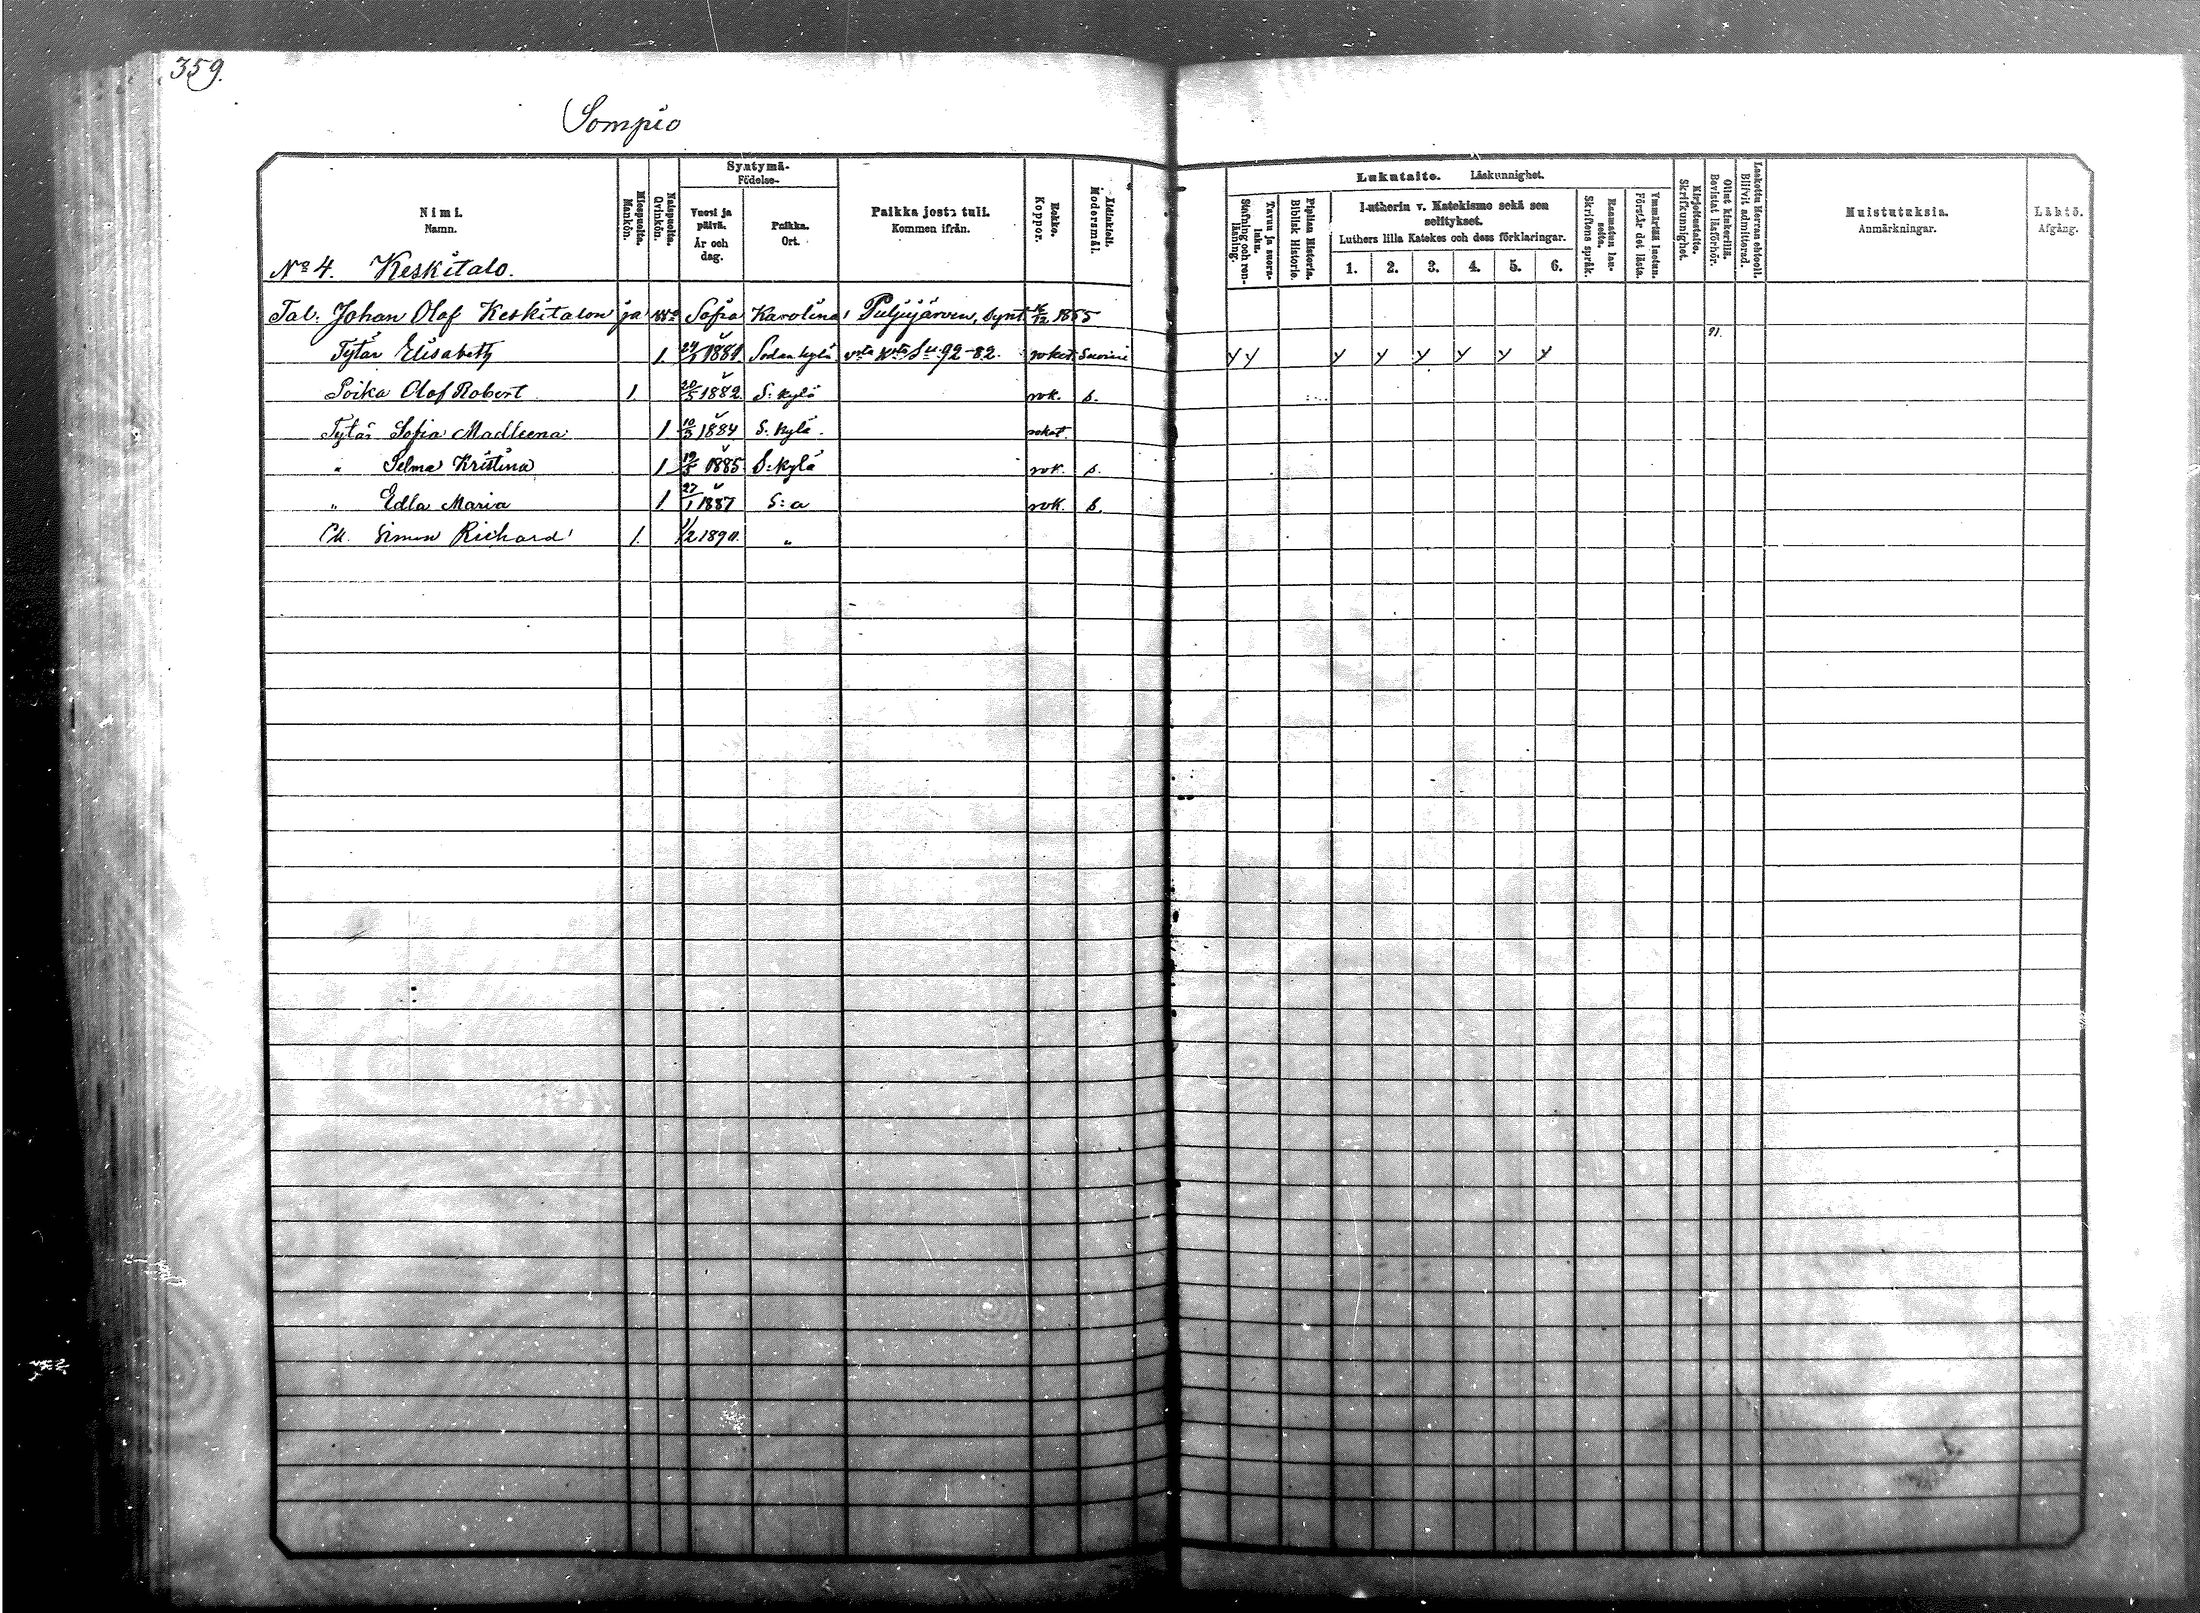 359.
Sompio
Nimi.
Namn.
Miespuolta.
Mankön.
Naispuolta.
Qvinkön.
Syntymä-
Födelse-
Vuosi ja päivä.
År och dag.
Paikka.
Ort.
Paikka josta tuli.
Kommen ifrån.
Rokko.
Koppor.
Äidinkieli.
Modersmål.
Lukutaito. Läskunnighet.
Tavuu ja suora-luku.
Stafning och ren-läsning.
Piplian Historia.
Biblisk Historie.
Lutherin v. Katekismo sekä sen selitykset.
Luthers lilla Katekes och dess förklaringar.
1. 2. 3. 4. 5. 6.
Raamatun lau-seita.
Skriftens språk.
Ymmärtää luetun.
Förstår det lästa.
Kirjoitustaito.
Skrifkunnighet.
Ollut kinkerillä.
Bevistat läsförhör.
Laskettu Herran ehtooll.
Blifvit admitterad.
Muistutuksia.
Anmärkningar.
Lähtö.
Afgång.
No 4. Keskitalo.
Tal. Johan Olof Keskitalon ja Sofia Karolina Puljujärven, synt. 1855
91.
Tytär Elisabeth 1 1881 Sodankylä 92-82. rokot. Suomi y y y y y y y y
Poika Olof Robert 1 20/5 1882 S:kylä rok. s.
Tytär Sofia Madleena 1 10/3 1884 S. kylä. rokot.
" Selma Kristina 1 19/5 1885 S:kylä rok. s.
" Edla Maria 1 27/1 1887 S:a rok. s.
Simon Richard 1. 1/2 1890. "